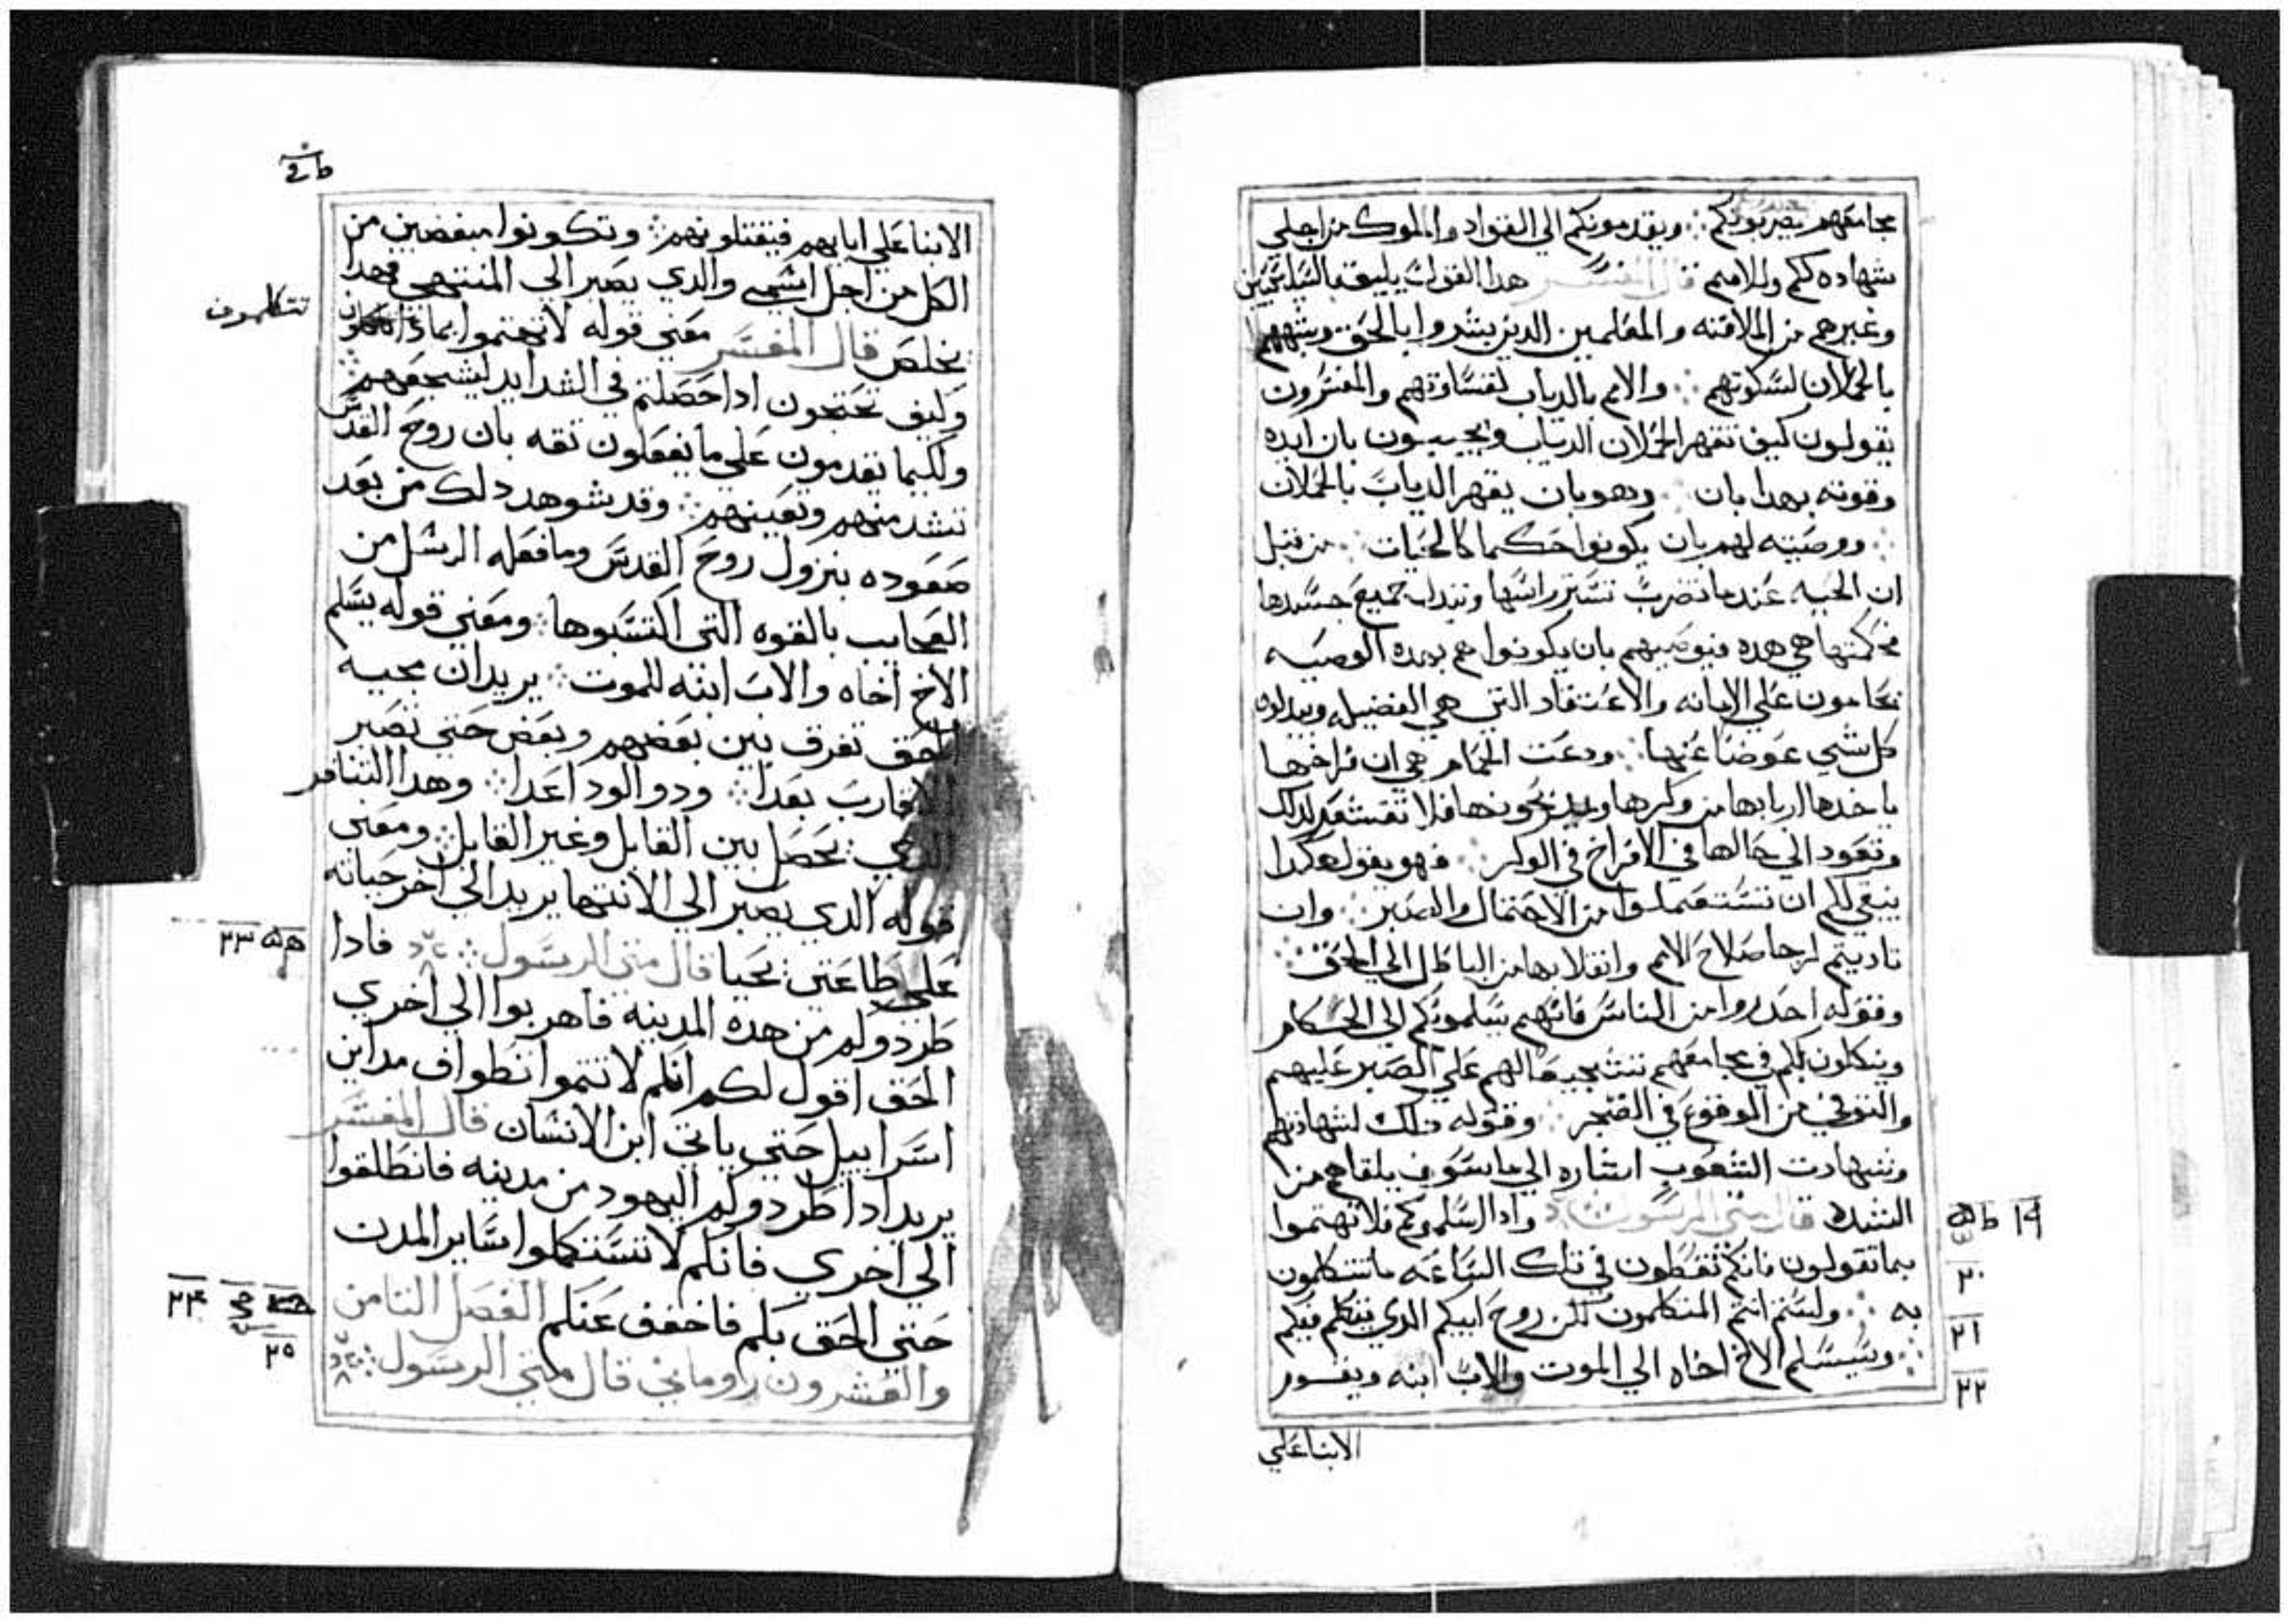 مجامعهم يضربونكم ؞ ويقدمونكم الي القواد والملوك من اجلي
شهاده لكم وللامم قال المفسر هدا القول يليق بالسليحيين
وغيرهم من الملافنه والمعلمين الدين بشروا بالحق وشبههم
بالحملان لسكونهم ؞ والامم بالدياب لقساوتهم والمفسرون
يقولون كيف تقهر الحملان الدياب ويجيبون بان ايده
وقوته بهدا بان ؞ وهو بان يقهر الدياب بالحملان
؞ ووصيته لهم بان يكونوا حكما كالحيات ؞ من قبل
ان الحيه عندما تضرب تستر راسها وتبدل جميع جسدها
فحكمتها هي هده فيوصيهم بان يكونوا هم بهده الوصيه
يحامون علي الامانه والاعتقاد التي هي الفضيله ويبدلون
كل شي عوضا عنها ؞ ودعت الحمام هي ان فراخها
ياخدها اربابها من وكرها ويدبحونها فلا تقشعر لدلك
وتعود الي حالها في الافراخ في الوكر ؞ فهو يقول هكدا
ينبغي لكم ان تستعملوا من الاحتمال والصبر ؞ وان
تاديتم لرجا صلاح الامم وانقلابها من الباطل الي الحق ؞
وقوله احدروا من الناس فانهم يسلمونكم الي الحكام
وينكلون بكم في مجامعهم تشجيعا لهم علي الصبر عليهم
والتوقي من الوقوع في الضجر ؞ وقوله تلك لشهادتهم
وشهادت الشعوب اشاره الي ما سوف يلقاهم من
الشده قال متي الرسول ؞ وادا اسلموكم فلا تهتموا
بما تقولون فانكم تعطون في تلك الساعه ما تتكلمون
به ؞ ولستم انتم المتكلمون لكن روح ابيكم الدي يتكلم فيكم
؞ وسيسلم الاخ اخاه الي الموت والاب ابنه ويقوم
الابنا علي
١٩
٢٠
٢١
٢٢
الابنا علي ابايهم فيقتلونهم ؞ وتكونوا مبغضين من
الكل من اجل اسمي والدي يصبر الي المنتهي فهدا
تتكلمون
يخلص قال المفسر معني قوله لا تهتموا بمادا
وكيف تحتجون ادا حصلتم في الشدايد ليشجعهم
ولكيما يقدمون علي ما يفعلون ثقه بان روح القدس
تشد منهم وتعينهم ؞ وقد شوهد دلك من بعد
صعوده بنزول روح القدس وما فعله الرسل من
العجايب بالقوه التي اكتسبوها ؞ ومعني قوله يسلم
الاخ اخاه والاب ابنه للموت ؞ يريد ان محبه
الحق تفرق بين بعضهم وبعض حتي تصير
الاقارب بعدا ؞ ودوو الود اعدا ؞ وهدا التنافر
الدي يحصل بين القابل وغير القابل ؞ ومعني
قوله الدي يصبر الي الانتها يريد الي اخر حياته
علي طاعتي يحيا قال متي الرسول ؞ فادا
٢٣
طردوكم من هده المدينه فاهربوا الي اخري
الحق اقول لكم انكم لا تتموا تطواف مداين
اسراييل حتي ياتي ابن الانسان قال المفسر
يريد ادا طردوكم اليهود من مدينه فانطلقوا
الي اخري فانكم لا تستكملوا ساير المدن
حتي الحق بكم فاخفف عنكم الفصل التامن
٢٤
والعشرون روماني قال متي الرسول ؞
٢٥